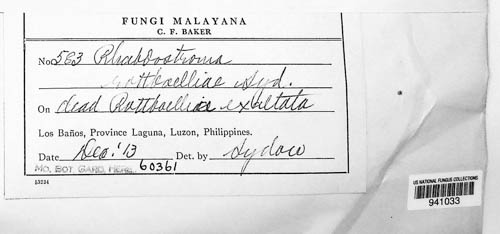 FUNGI MALAYANA
C. F. BAKER
No. 583 Rhabdostroma
Rottboelliae Syd.
On dead Rottboelliae exaltata
Los Baños, Province Laguna, Luzon, Philippines.
Date Dec. '13 Det. by Sydow
MO. BOT. GARD. HERB. 60361
13234
US NATIONAL FUNGUS COLLECTIONS
941033